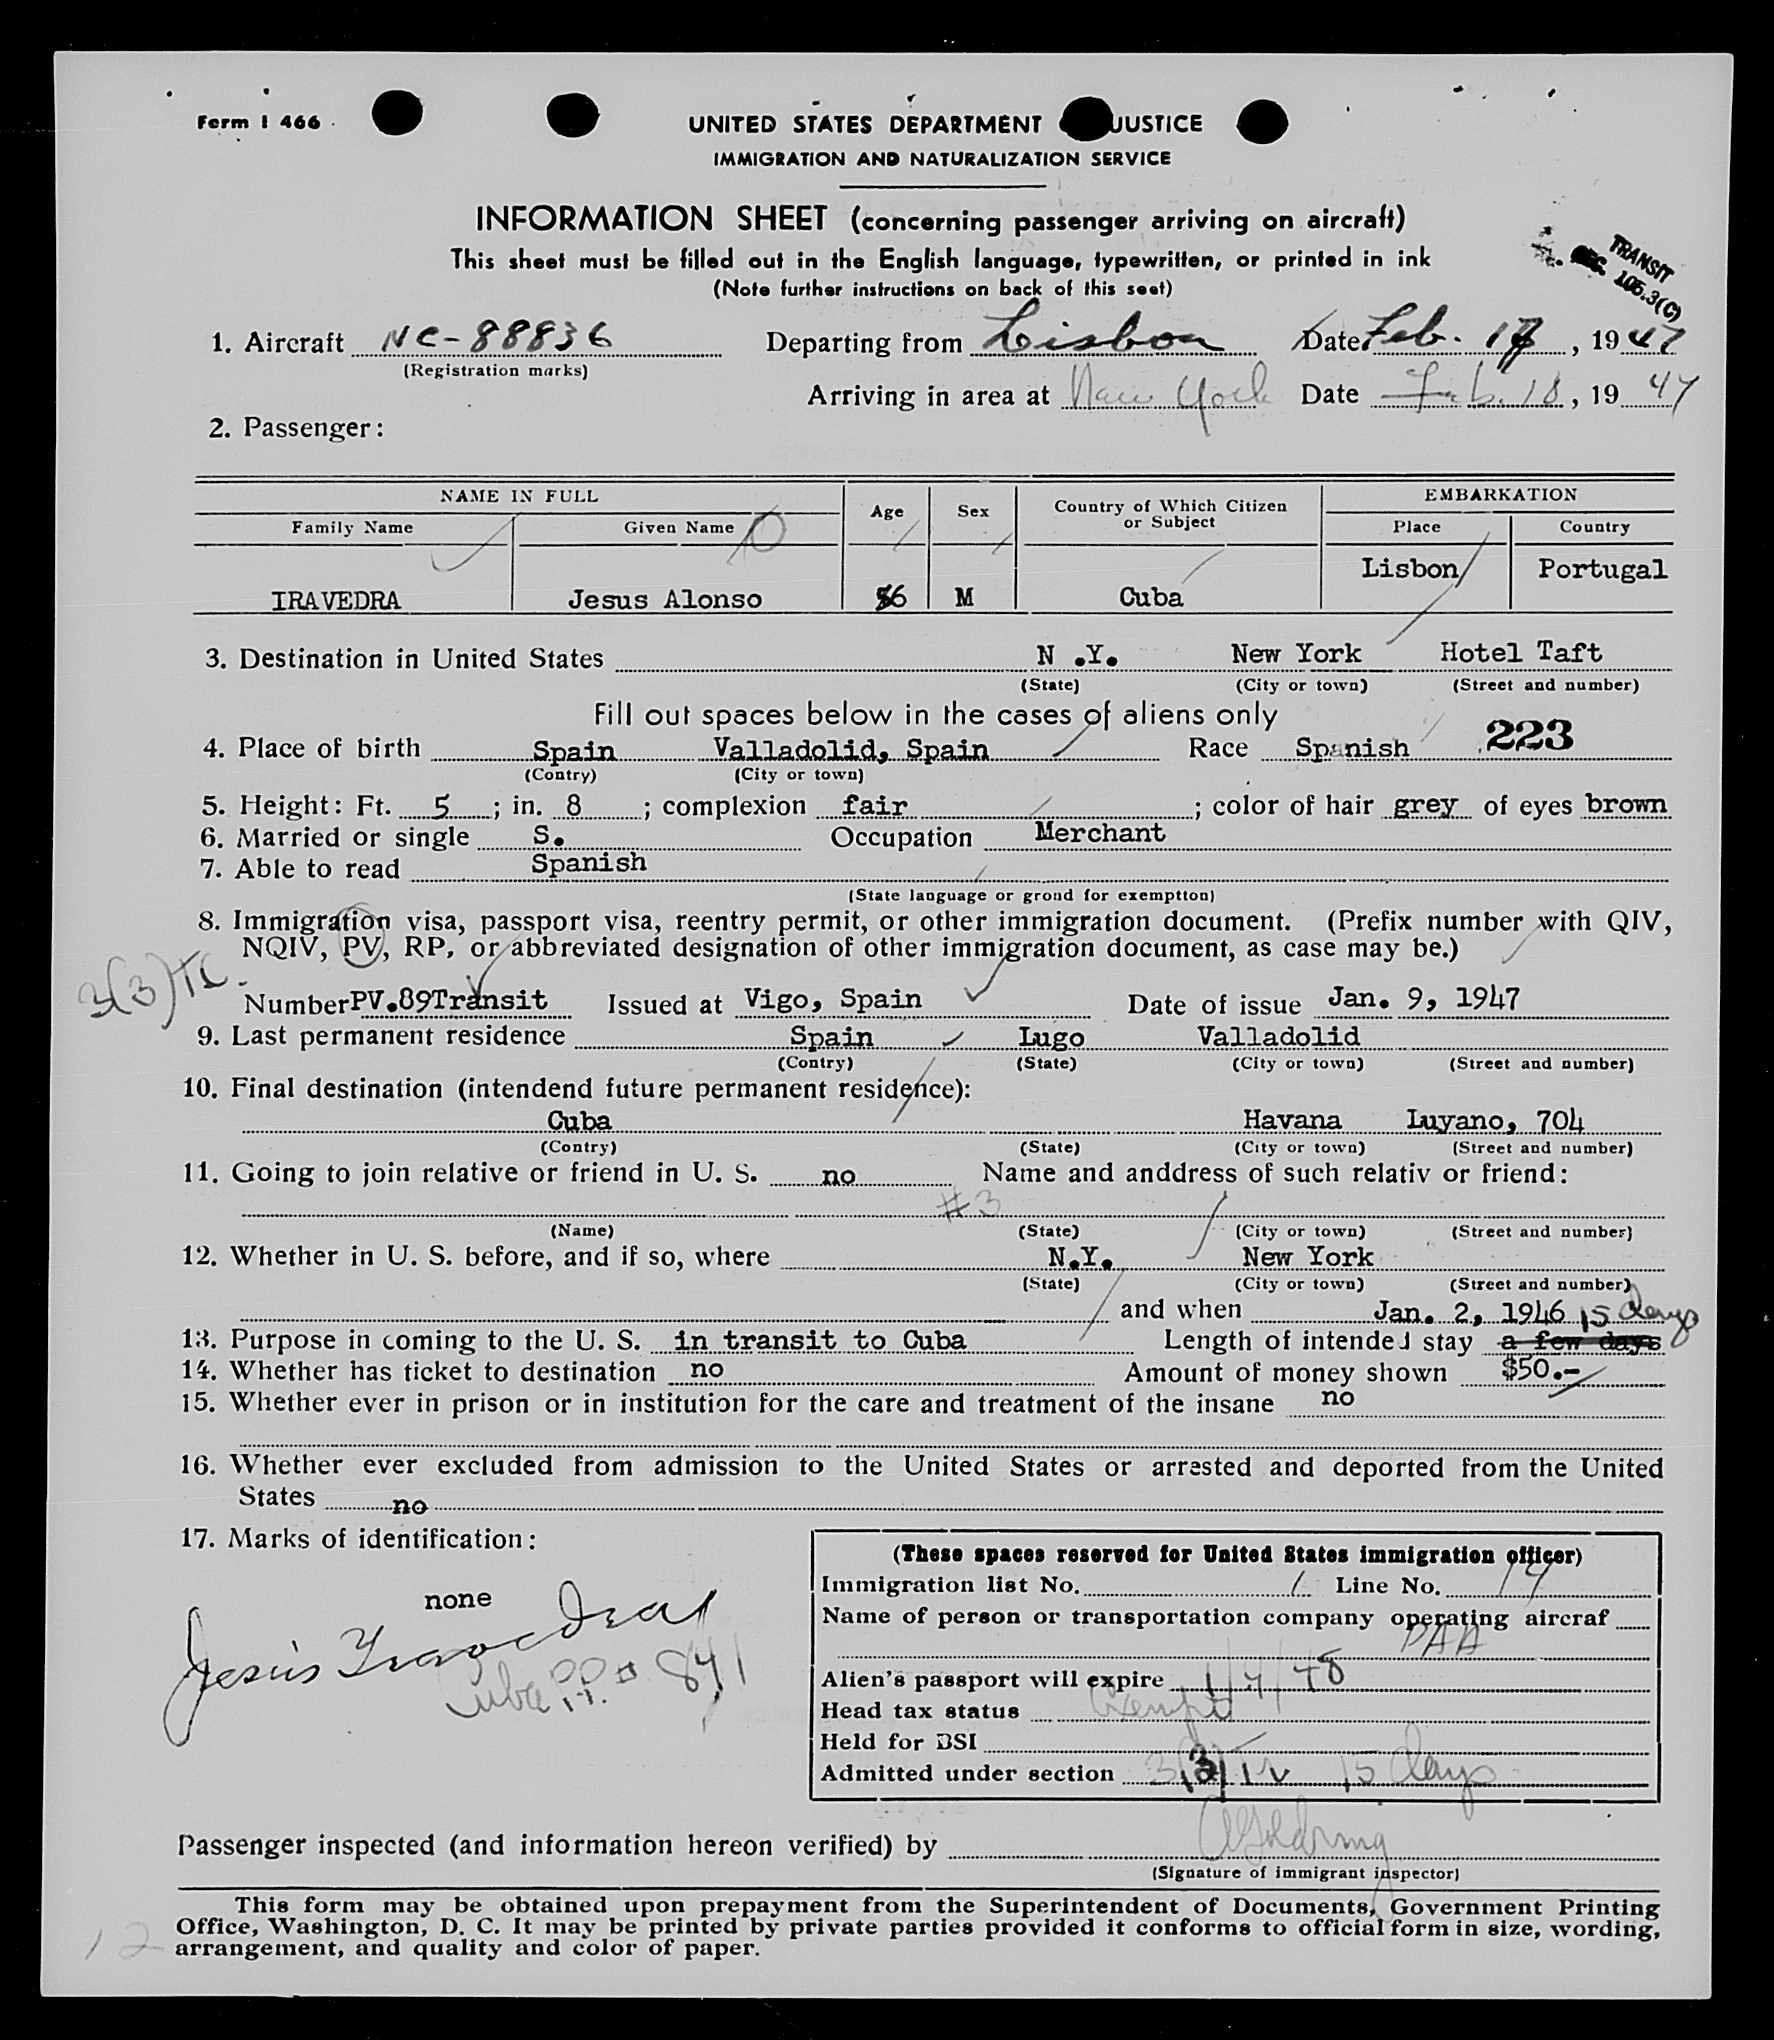 Form I 466
UNITED STATES DEPARTMENT JUSTICE
IMMIGRATION AND NATURALIZATION SERVICE
INFORMATION SHEET (concerning passenger arriving on aircraft)
This sheet must be filled out in the English language, typewritten, or printed in ink
(Note further instructions on back of this seet)
TRANSIT
SEC. 105.3(C)
1. Aircraft NC-88836 Departing from Lisbon Date Feb. 17, 1947
(Registration marks)
Arriving in area at New York Date Feb. 18, 1947
2. Passenger:
NAME IN FULL Age Sex Country of Which Citizen or Subject EMBARKATION
Family Name Given Name Place Country
Lisbon Portugal
IRAVEDRA Jesus Alonso 56 M Cuba
3. Destination in United States N .Y. New York Hotel Taft
(State) (City or town) (Street and number)
Fill out spaces below in the cases of aliens only
4. Place of birth Spain Valladolid, Spain Race Spanish 223
(Contry) (City or town)
5. Height: Ft. 5 ; in. 8 ; complexion fair ; color of hair grey of eyes brown
6. Married or single S. Occupation Merchant
7. Able to read Spanish
(State language or groud for exemptton)
8. Immigration visa, passport visa, reentry permit, or other immigration document. (Prefix number with QIV,
NQIV, PV, RP, or abbreviated designation of other immigration document, as case may be.)
3(3)Tr.
Number PV.89Transit Issued at Vigo, Spain Date of issue Jan. 9, 1947
9. Last permanent residence Spain Lugo Valladolid
(Contry) (State) (City or town) (Street and number)
10. Final destination (intendend future permanent residence):
Cuba Havana Luyano, 704
(Contry) (State) (City or town) (Street and number)
11. Going to join relative or friend in U. S. no Name and anddress of such relativ or friend:
#3
(Name) (State) (City or town) (Street and number)
12. Whether in U. S. before, and if so, where N.Y. New York
(State) (City or town) (Street and number)
and when Jan. 2, 1946 15 days
13. Purpose in coming to the U. S. in transit to Cuba Length of intended stay a few days
14. Whether has ticket to destination no Amount of money shown $50.-
15. Whether ever in prison or in institution for the care and treatment of the insane no
16. Whether ever excluded from admission to the United States or arrested and deported from the United
States no
17. Marks of identification:
none
Jesús Iravedra
Cuba P.P. # 841
(These spaces reserved for United States immigration officer)
Immigration list No. 1 Line No. 14
Name of person or transportation company operating aircraf
PAA
Alien's passport will expire 1/7/48
Head tax status Exempt
Held for BSI
Admitted under section 3(3)Tr 15 days
Passenger inspected (and information hereon verified) by
(Signature of immigrant inspector)
This form may be obtained upon prepayment from the Superintendent of Documents, Government Printing
Office, Washington, D. C. It may be printed by private parties provided it conforms to official form in size, wording,
arrangement, and quality and color of paper.
12